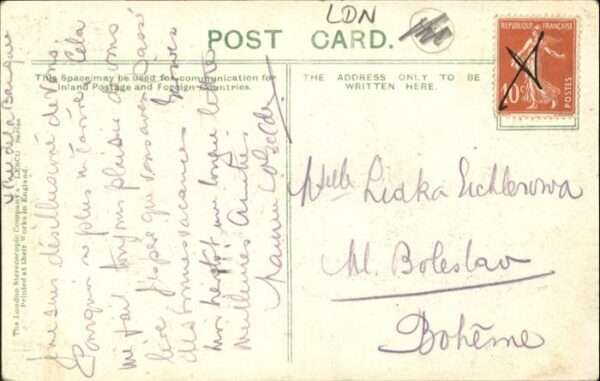 LDN
POST CARD.
REPUBLIQUE FRANÇAISE
10c
POSTES
This Space may be used for communication for
Inland Postage and Foreign Countries.
THE ADDRESS ONLY TO BE
WRITTEN HERE.
The London Stereoscopic Company's "LESCO" Series
Printed at their Works in England
Rue de la Banque
Je suis désillusionné de vous
Pourquoi ne plus m'écrire Cela
me fait toujours plaisir de vous
lire J'espère que vous avez passé
de bonnes vacances
moi bientôt une longue lettre
Meilleures Amitiés
Mlle Lidka Eichlerowa
Ml. Boleslav
Bohême